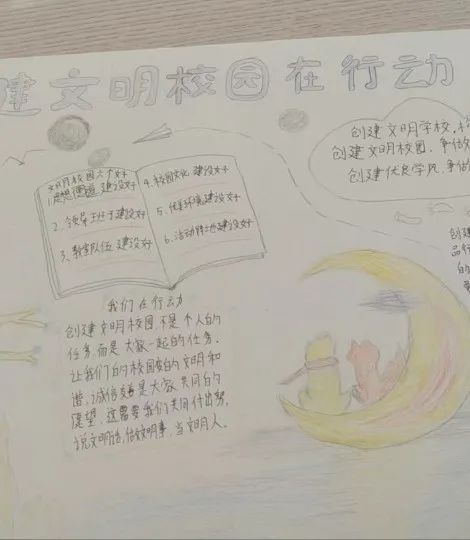 建文明校园在行动
文明校园六个好
1.思想道德建设好
2.领导班子建设好
3.教师队伍建设好
4.校园文化建设好
5.优美环境建设好
6.活动阵地建设好
创建文明学校,
创建文明校园,争做
创建优良学风,争做
我们在行动
创建文明校园,不是个人的
任务,而是大家一起的任务.
让我们的校园的文明和
谐,诚信友善是大家共同的
愿望.这需要我们共同付出努,
说文明话,做文明事,当文明人.
创建
品行
的